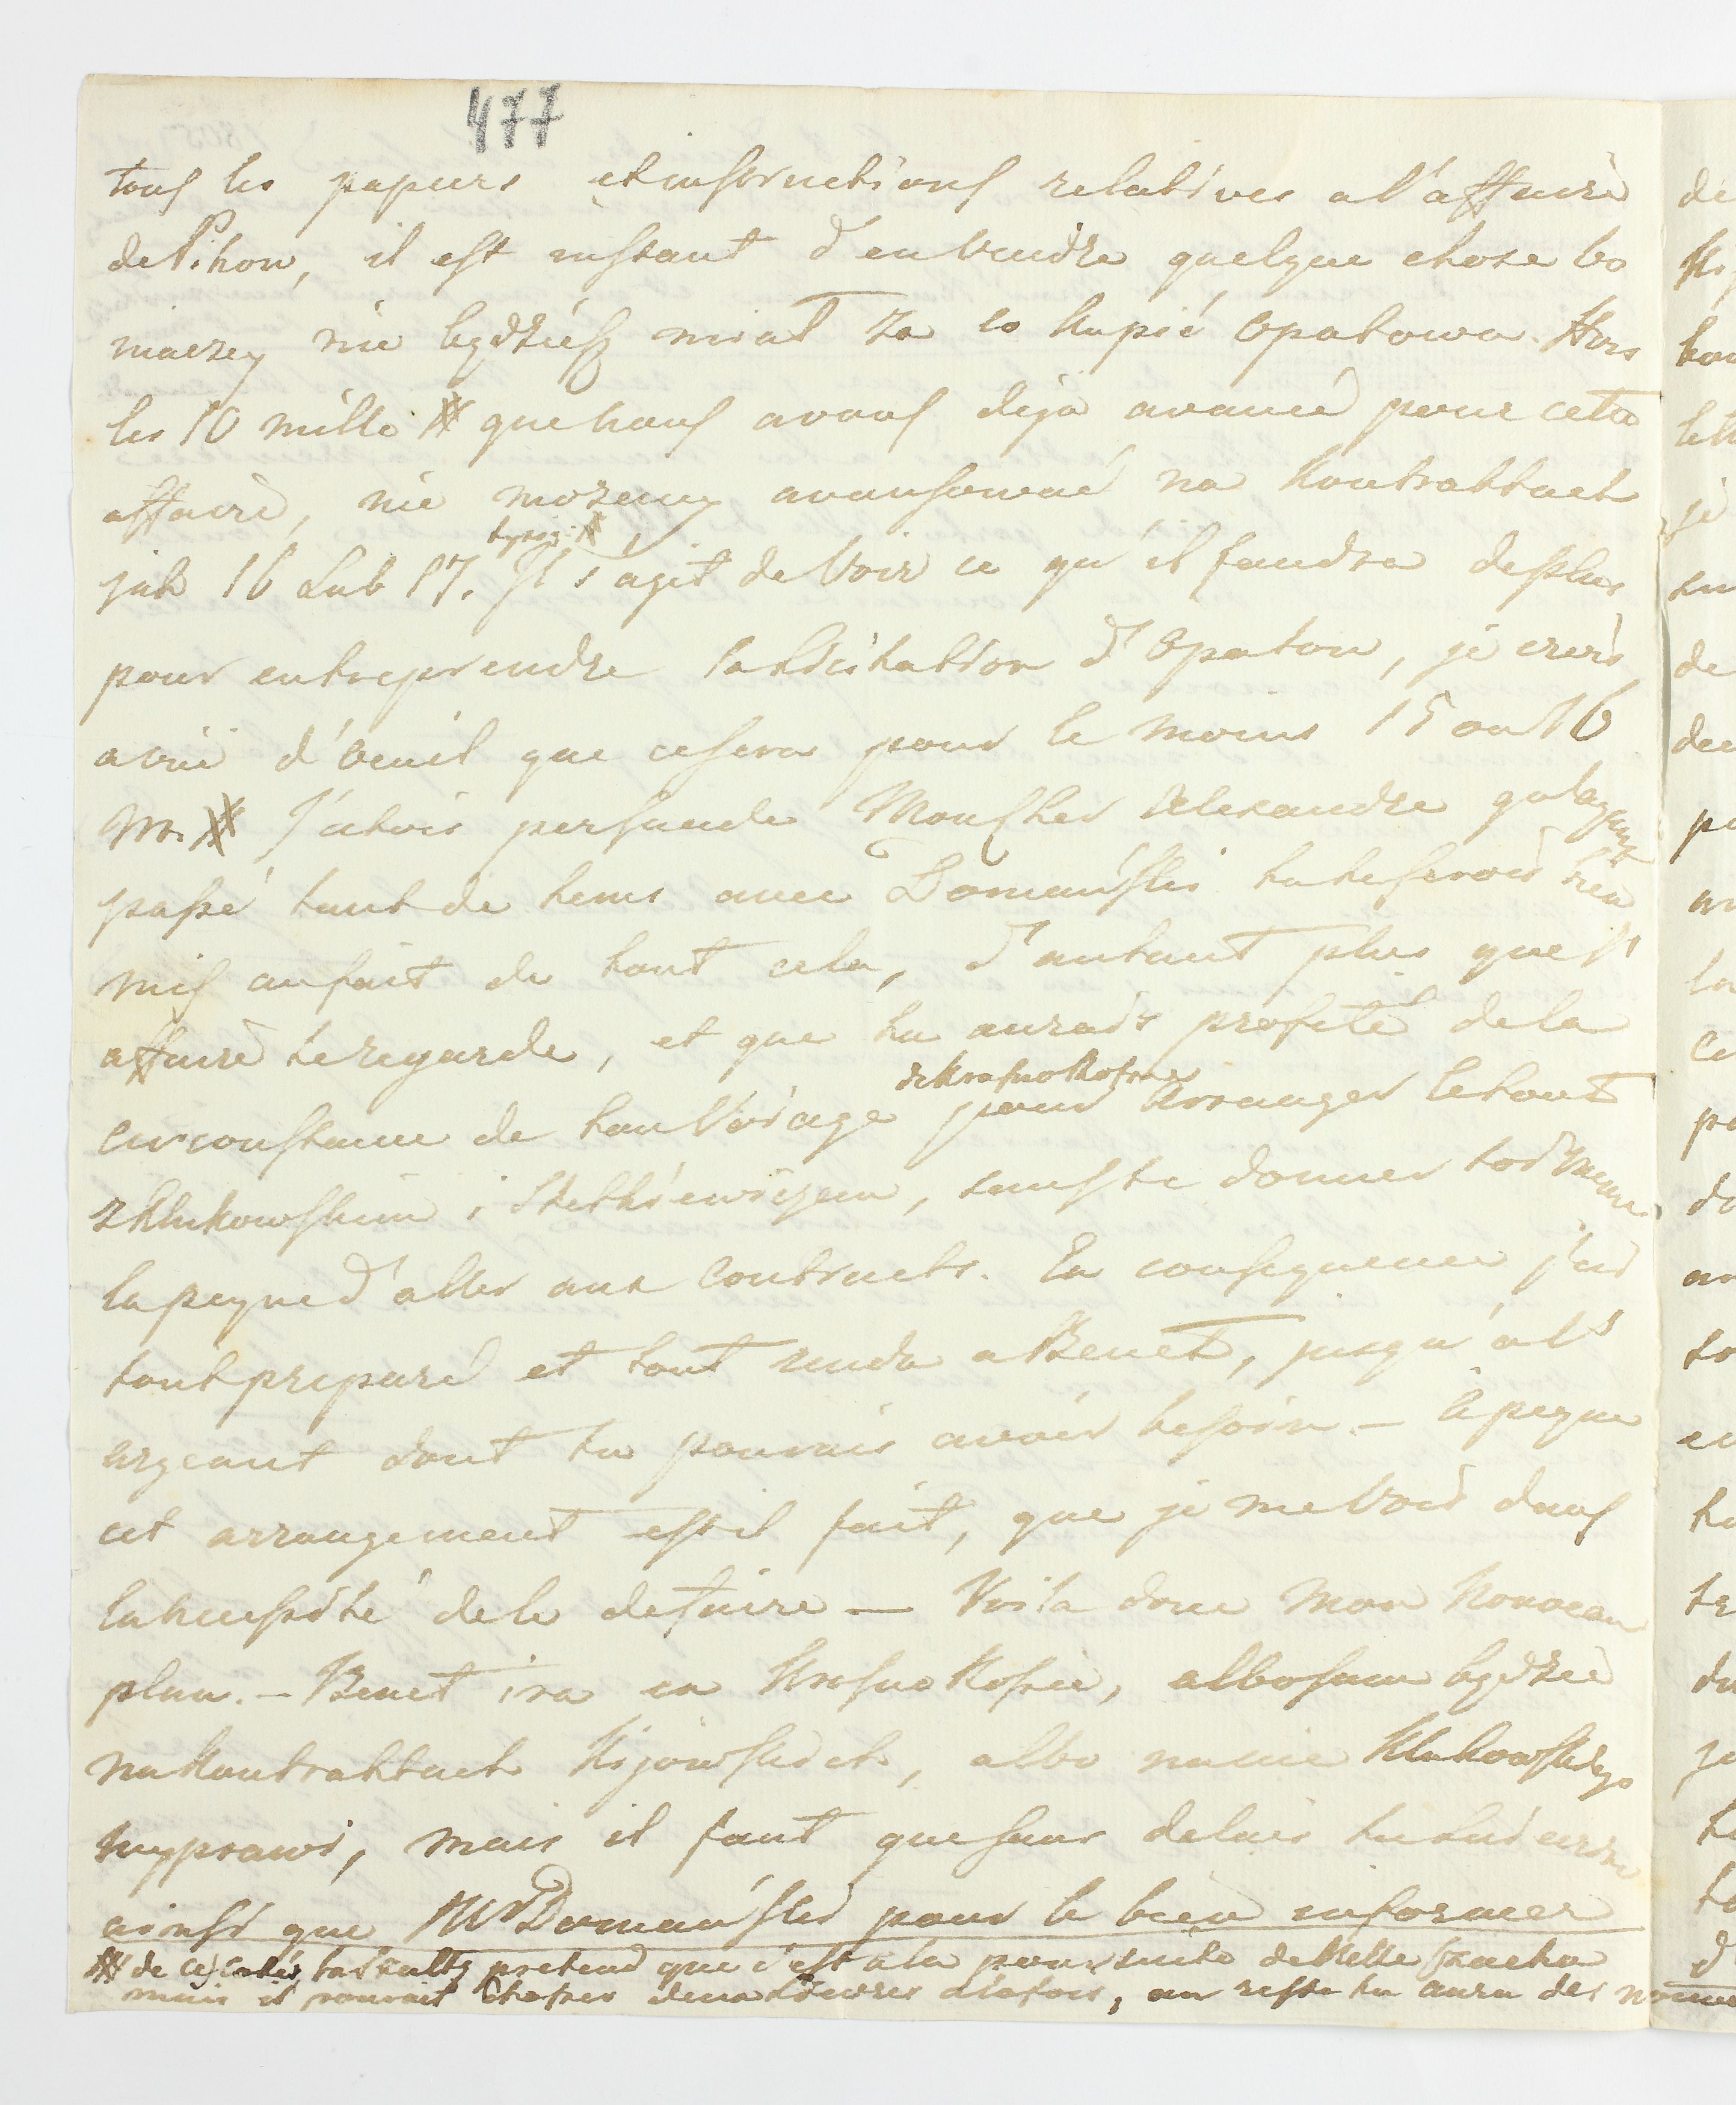 477
tous les papiers et instructions relatives a l'affaire
de Pihow, il est instant d'en vendre quelque chose bo
inaczey nie będziesz miał za co kupić Opatowa. Hors
les 10 mille # que nous avons deja avancé pour cette
affaire, nie możemy avansować na kontraktach
tysięcy #
jak 16 lub 17. Il s'agit de voir ce qu'il faudra de plus
pour entreprendre la licitation d'Opatow, je crois
a vue d'oeuil que ce sera pour le moins 15 ou 16
m. # J'etois persuade Mon Cher Alexandre qu'ayant
passé tant de tems avec Domański tu te serois bien
mis au fait de tout cela, d'autant plus que l'
affaire te regarde, et que tu aurois profité de la
de Krasnokosie
circonstance de ton voiage pour arranger le tout
z Klukowskim i Stetkiewiczem, sans te donner toi meme
la peyne d'aller aux Contracts. En consequence j'ai
tout preparé et tout rendu a Benet, jusqu'a l'
argeant dont tu pourrais avoir besoin — à peyne
cet arrangement est il fait, que je me vois dans
la necessité de le defaire — Voila donc mon nouveau
plan. — Benet ira en Krasnokosie, albo sam będzie
na kontraktach Kijowskich, albo na nie Klukowskiego
wyprawi, mais il faut que sans delais tu lui ecrive
ainsi que Mr Domański pour le bien informer
# de ce coté pretend que c'est a la poursuite de Melle
mais il pourait chasser deux Lievres a la fois, au reste tu aura des